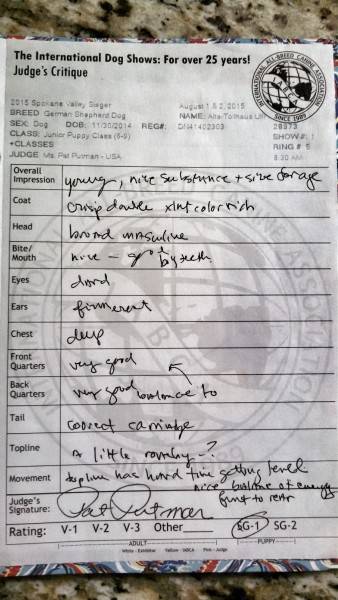 The International Dog Shows: For over 25 years!
Judge's Critique
INTERNATIONAL ALL-BREED CANINE ASSOCIATION
SINCE 1989
2015 Spokane Valley Sieger August 1 & 2, 2015
BREED German Shepherd Dog NAME: Alta-Tollhaus
SEX: Dog DOB: 11/30/2014 REG#: DN41402303 28373
CLASS: Junior Puppy Class (6-9) SHOW#: 1
+CLASSES RING # 5
JUDGE Ms. Pat Putman - USA 8:30 AM
Overall Impression young, nice substance + size for age
Coat crisp double xlnt color rich
Head broad masculine
Bite/Mouth nice - big teeth
Eyes
Ears
Chest deep
Front Quarters very good
Back Quarters very good balance to
Tail correct carriage
Topline A little roachy-?
Movement topline has hard time getting level
nice balance of energy
front to rear
Judge's Signature: Pat Putman
Rating: V-1 V-2 V-3 Other SG-1 SG-2
ADULT PUPPY
White - Exhibitor Yellow - IABCA Pink - Judge